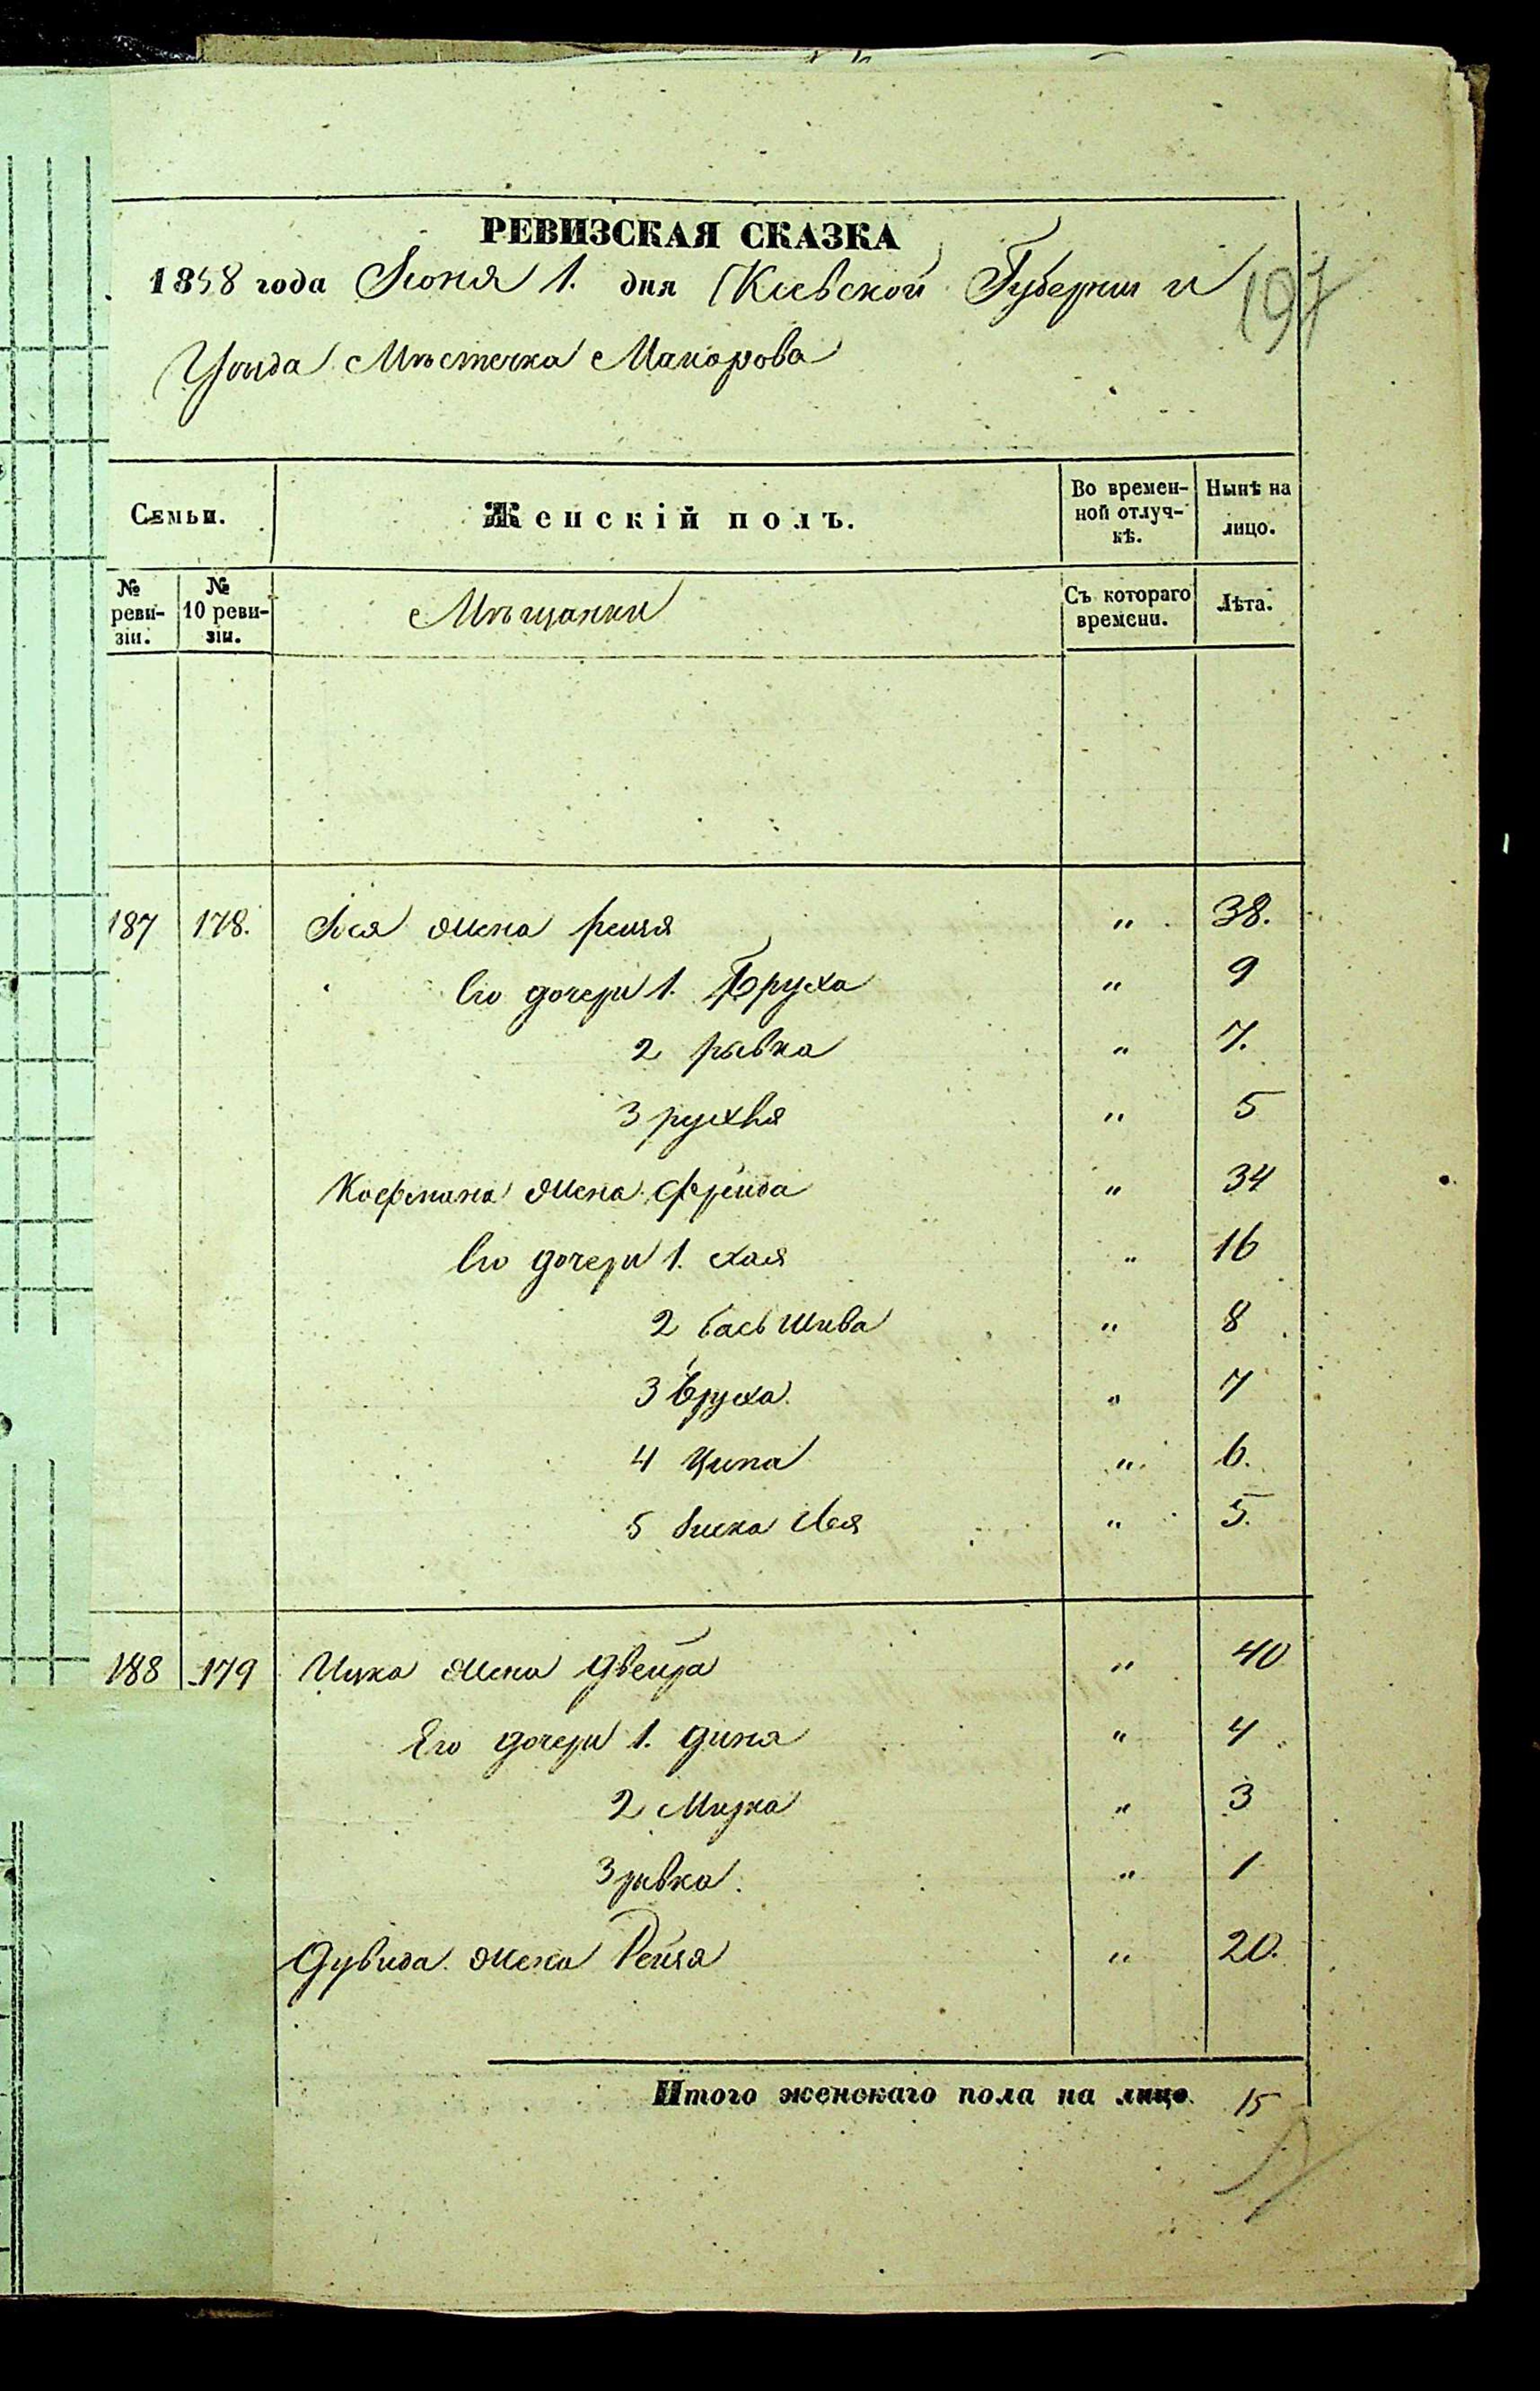 РЕВИЗСКАЯ СКАЗКА
1858 года Июня 1. дня Киевской Губернии и
197
Уѣзда Мѣстечка Макарова
Семьи.
Женскій полъ.
Во времен-
ной отлуч-
кѣ.
Нынѣ на
лицо.
№
реви-
зіи.
№
10 реви-
зіи.
Мѣщанки
Съ котораго
времени.
Лѣта.
187 178. Іося жена рейзя " 38.
Его дочери 1. Бруха " 9
2 рывка " 7.
3 рухля " 5
Кофмана жена Фрейда " 34
Его дочери 1. хая " 16
2 бась шива " 8
3 бруха " 7
4 Ципа " 6.
5 " 5.
188 179 Ицка жена двейра " 40
Его дочери 1. диня " 4
2 Мирка " 3
3 рывка " 1
Дувида жена Рейзя " 20.
Итого женскаго пола на лицо. 15